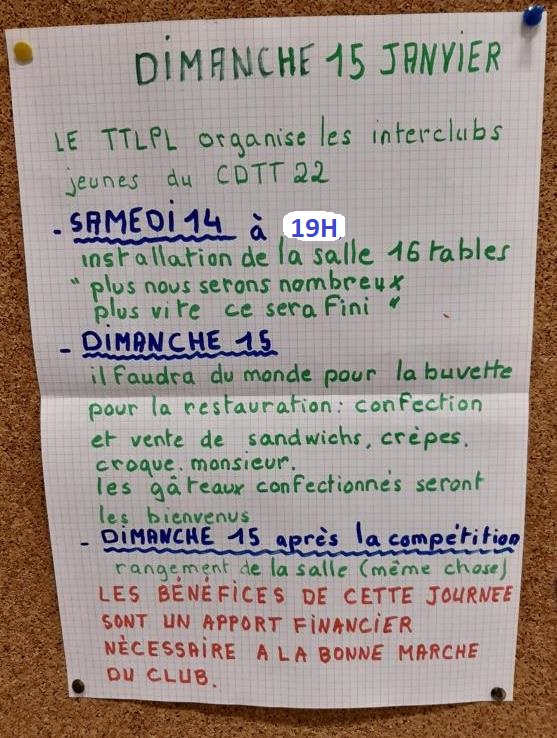 DIMANCHE 15 JANVIER
LE TTLPL organise les interclubs
jeunes du CDTT 22
- SAMEDI 14 à 19H
installation de la salle 16 tables
" plus nous serons nombreux
plus vite ce sera fini "
- DIMANCHE 15
il faudra du monde pour la buvette
pour la restauration: confection
et vente de sandwichs, crèpes.
croque. monsieur.
les gâteaux confectionnés seront
les bienvenus
- DIMANCHE 15 après la compétition
rangement de la salle (même chose)
LES BÉNÉFICES DE CETTE JOURNEE
SONT UN APPORT FINANCIER
NÈCESSAIRE A LA BONNE MARCHE
DU CLUB.